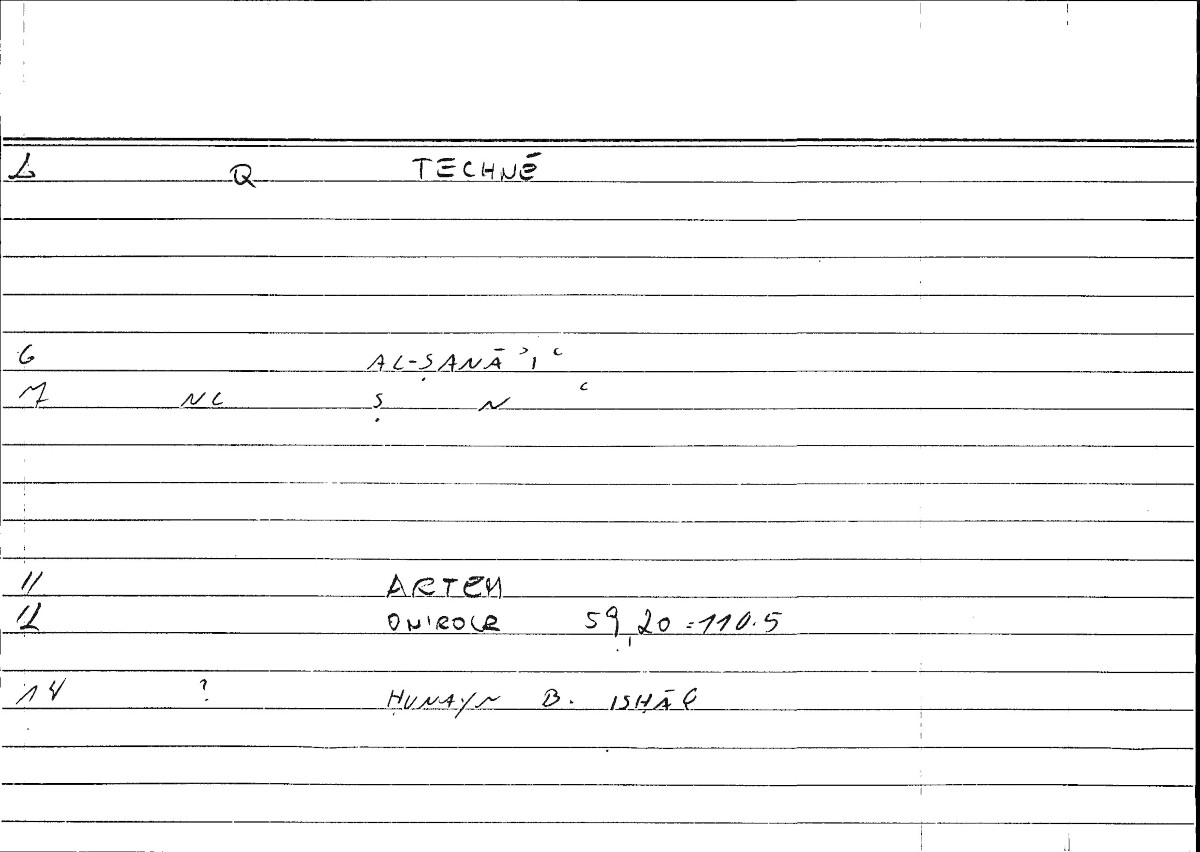 2 Q TECHNĒ
6 AL-ṢANĀʾIʿ
7 NC Ṣ N ʿ
11 ARTEM
12 ONIROCR 59,20=110.5
14 ? ḤUNAYN B. ISḤĀQ